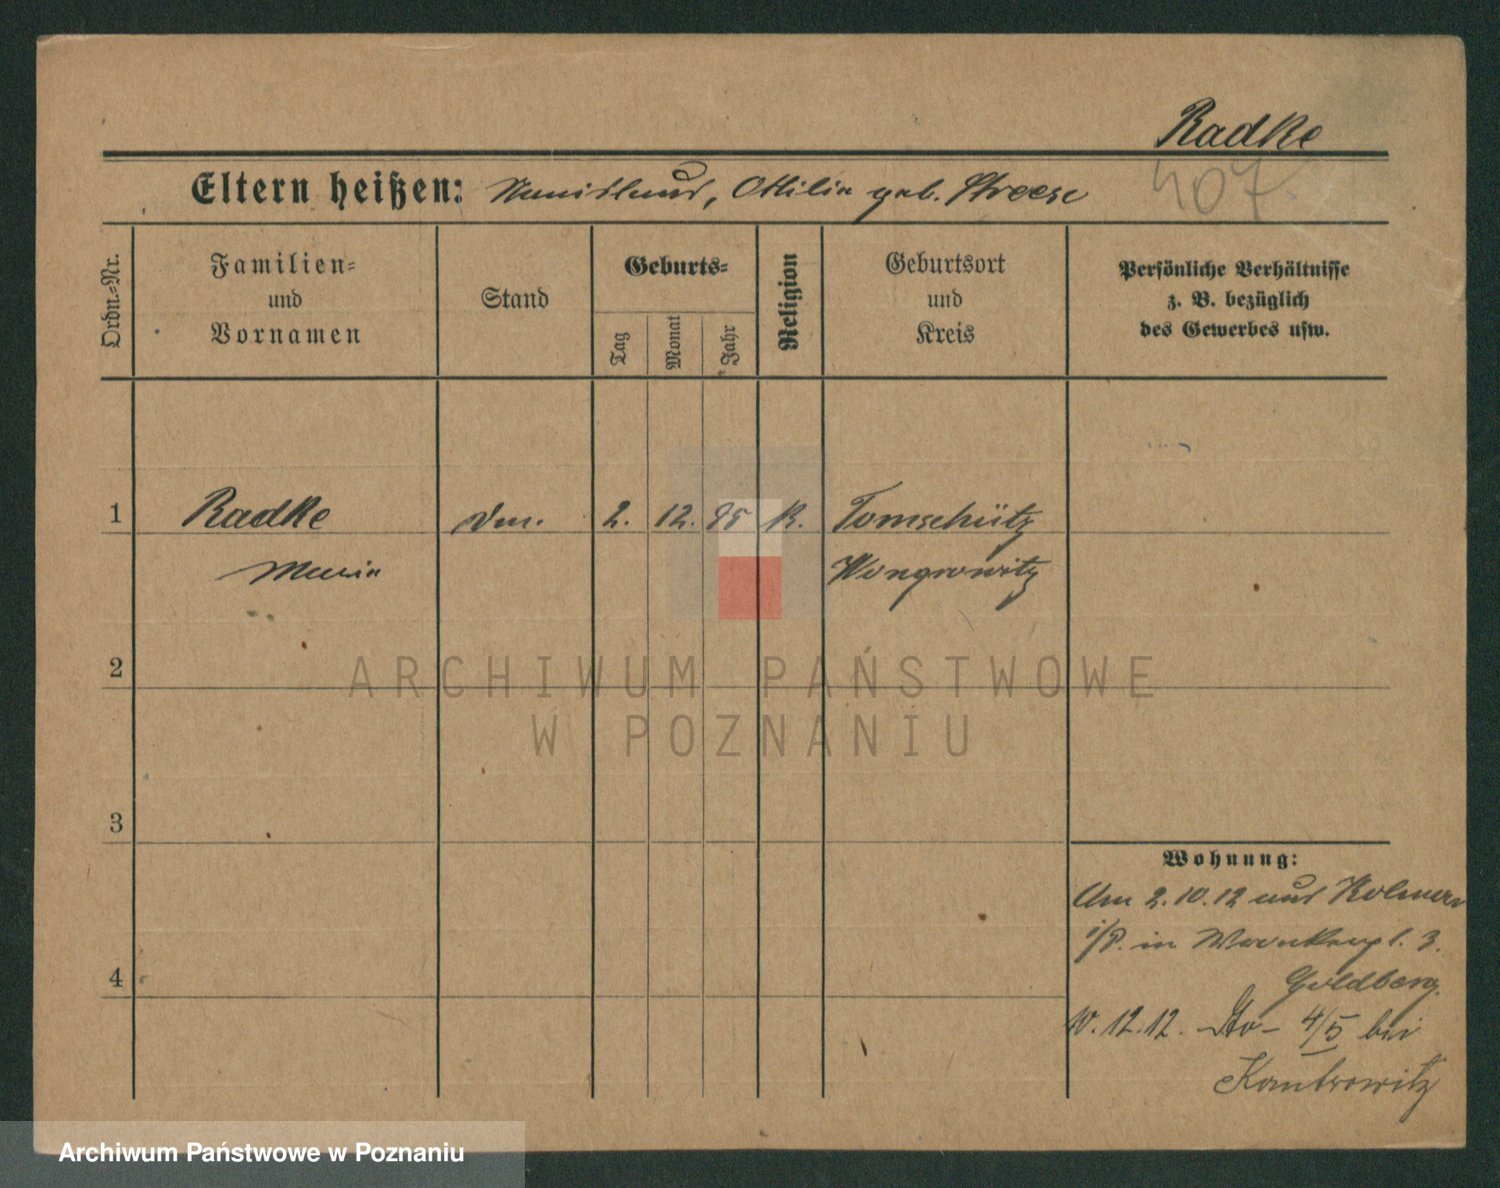 Radke
Eltern heißen: Stanislaus, Ottilia geb. Streese
407
Ordn.-Nr.
Familien-
und
Vornamen
Stand
Geburts-
Tag
Monat
Jahr
Religion
Geburtsort
und
Kreis
Persönliche Verhältnisse
z. B. bezüglich
des Gewerbes usw.
1 Radke 2. 12. 95 K. Tomschütz
Maria Wongrowitz
2
3
4
Wohnung:
Am 2.10.12 aus Kolmar
i/P. in 3.
Goldberg.
10.12.12. 4/5 bei
Kantrowitz
ARCHIWUM PAŃSTWOWE
W POZNANIU
Archiwum Państwowe w Poznaniu